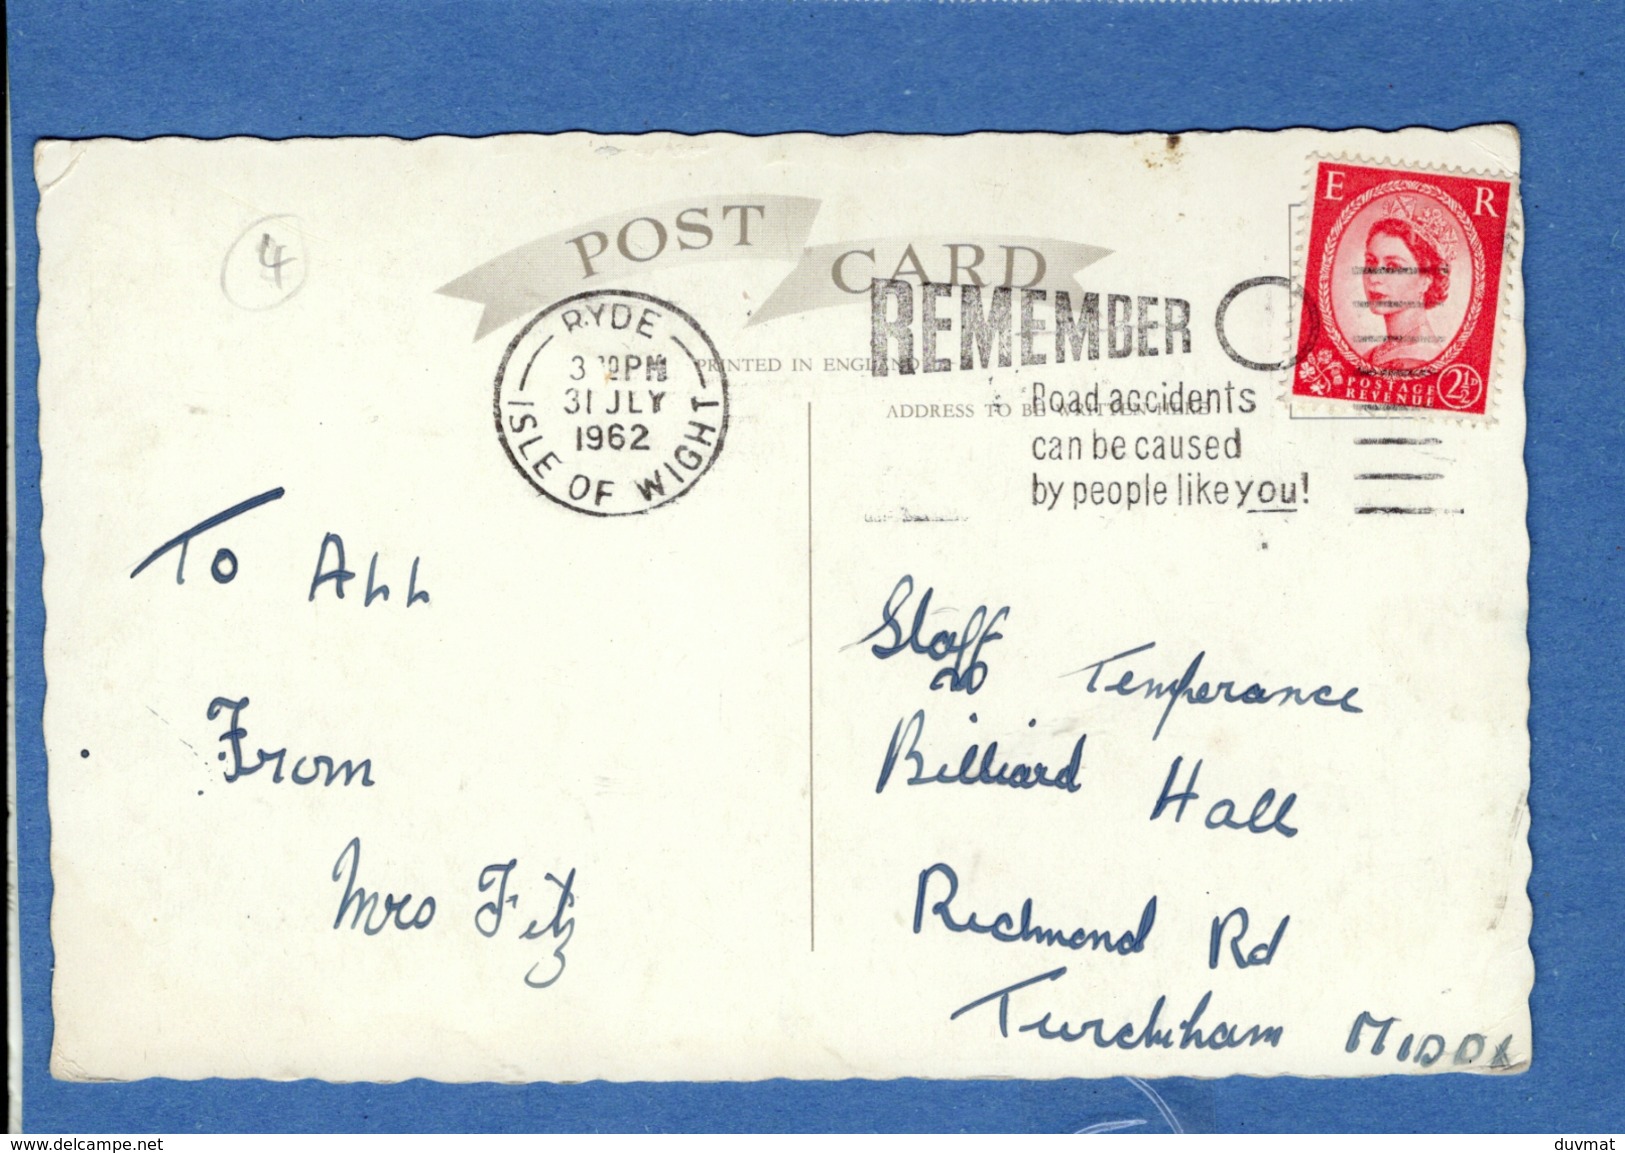 4
POST CARD
RYDE
3 30PM
31 JLY
1962
ISLE OF WIGHT
PRINTED IN ENGLAND
ADDRESS TO BE WRITTEN HERE
REMEMBER
Road accidents
can be caused
by people like you!
E R
POSTAGE
REVENUE
2½D
To ALL
From
Mrs Fitz
Staff
Temperance
Billiard Hall
Richmond Rd
Twickenham MIDDX
www.delcampe.net
duvmat